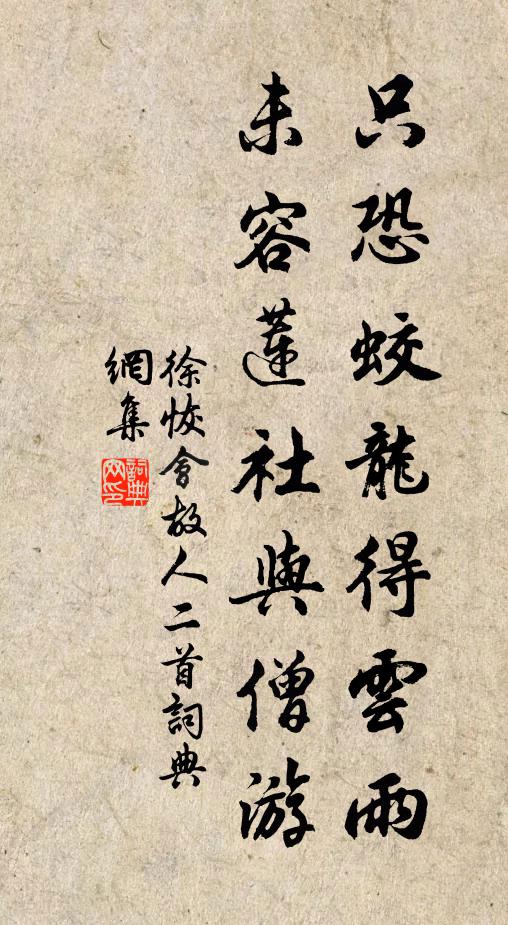 只恐蛟龍得雲雨
未容蓮社與僧游
徐恢會故人二首詞典
網集
詞典網印